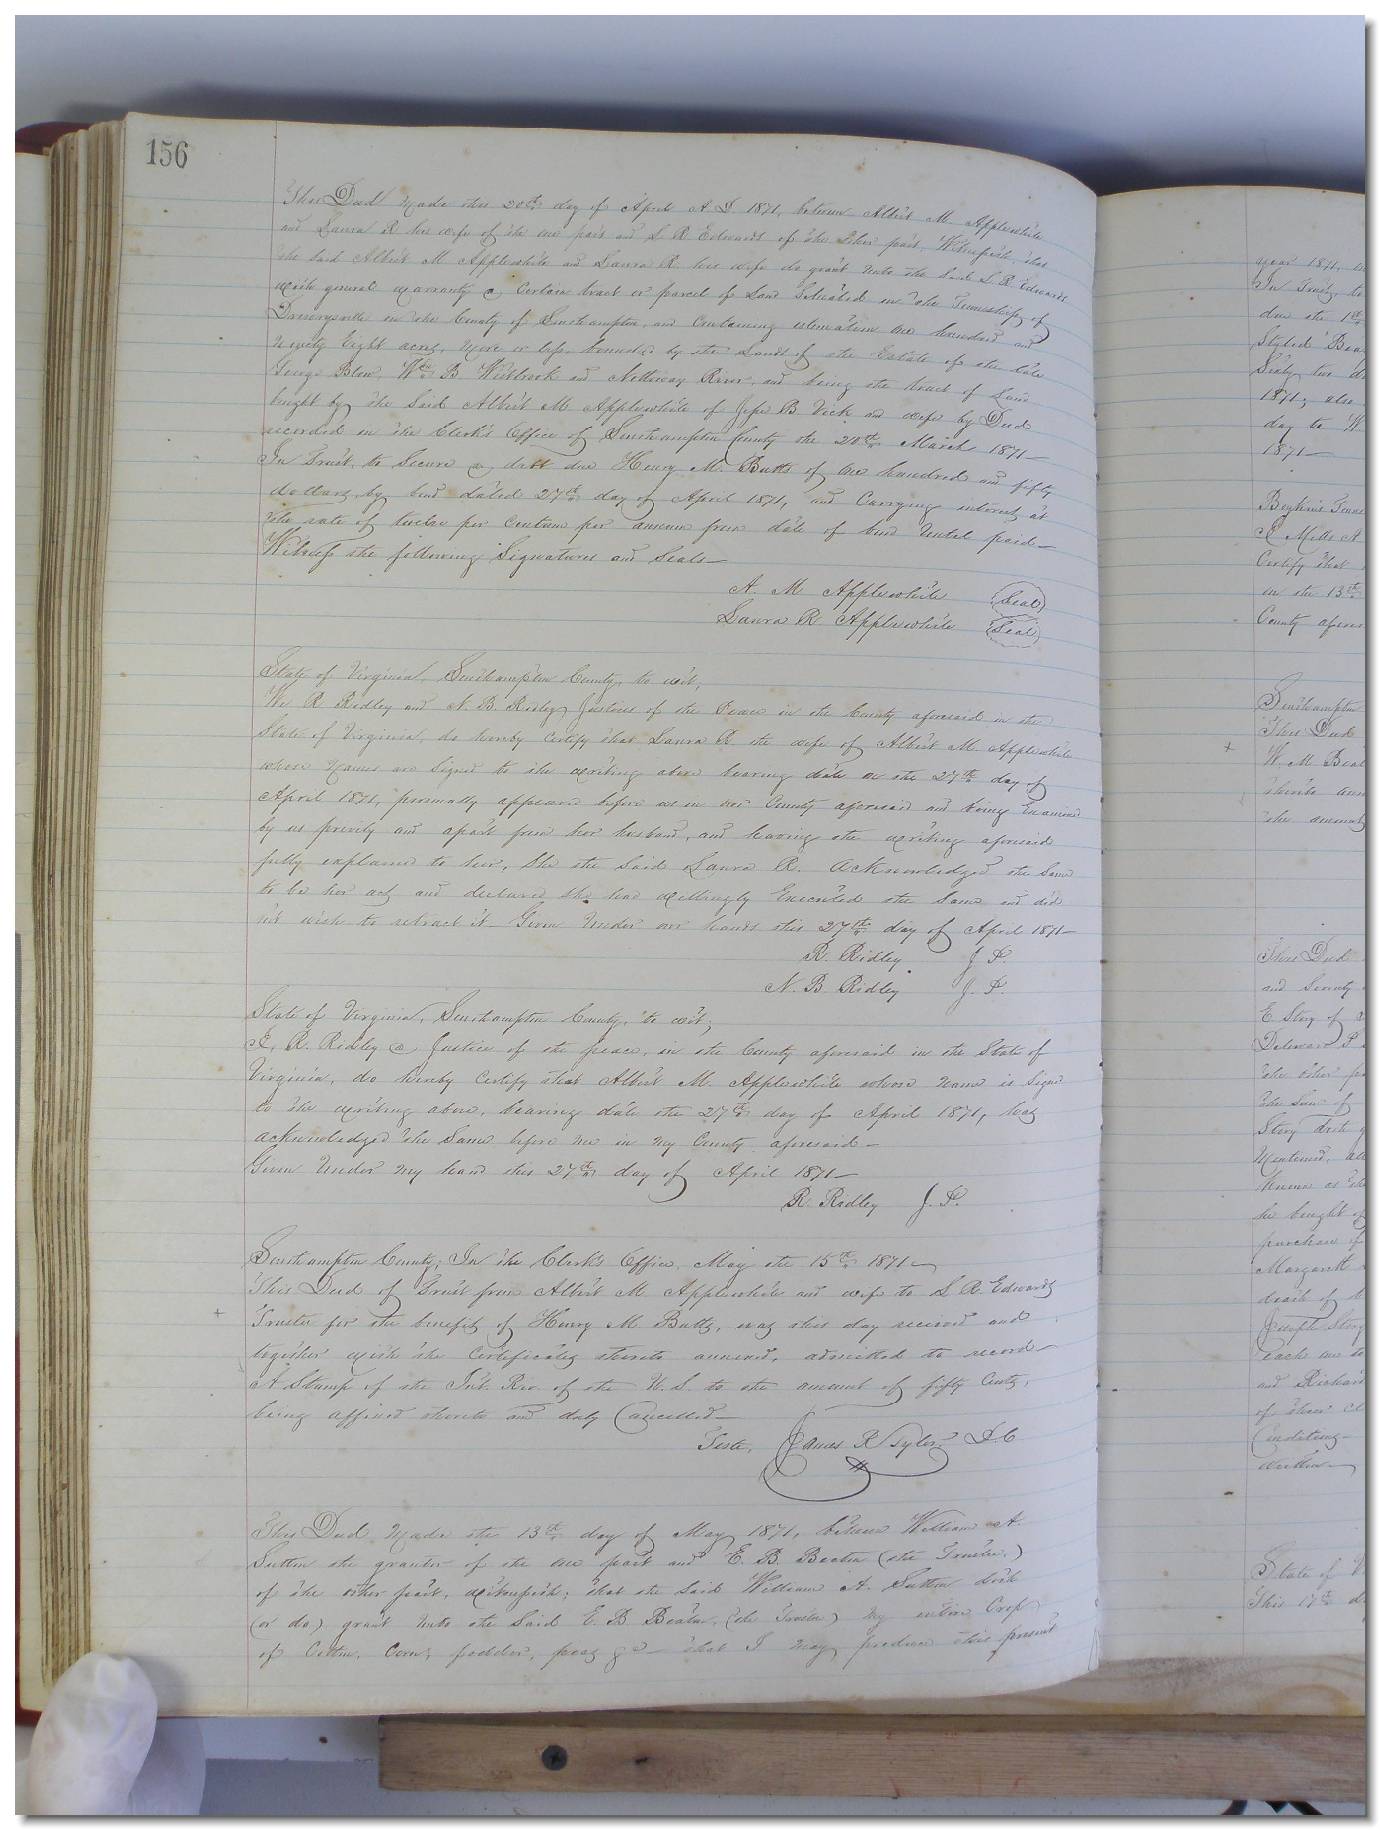 156
This Deed Made this 20th day of April A D 1871, between Albert M Applewhite
and Laura R his wife of the one part and S. R Edwards of the other part, Witnesseth, that
the said Albert M Applewhite and Laura R. his wife do grant unto the said S. R. Edwards
with general warranty a Certain tract or parcel of Land Situated in the Township of
Drewrysville in the County of Southampton, and Containing estimation One hundred and
Ninety Eight acres, More or less bounded by the Lands of the Estate of the late
George Blow, Wm B Westbrook and Nottoway River, and being the tract of Land
bought by the Said Albert M Applewhite of Jesse B Vick and wife by Deed
recorded in the Clerk's Office of Southampton County the 20th March 1871—
In Trust, to Secure a debt due Henry M. Butts of One hundred and fifty
dollars, by bond dated 27th day of April 1871, and Carrying interest at
the rate of twelve per Centum per annum from date of bond Until paid—
Witness the following Signatures and Seals—
A. M Applewhite (Seal)
Laura R Applewhite (Seal)
State of Virginia, Southampton County, to wit,
We R Ridley and N. B. Ridley Justices of the Peace in the County aforesaid in the
State of Virginia, do hereby Certify that Laura R. the wife of Albert M. Applewhite
whose Names are Signed to the writing above bearing date on the 27th day of
April 1871, personally appeared before us in our County aforesaid and being Examined
by us privily and apart from her husband, and having the writing aforesaid
fully explained to her, She the Said Laura R. acknowledged the Same
to be her act, and declared she had willingly Executed the Same and did
not wish to retract it— Given Under our hands this 27th day of April 1871—
R. Ridley J. P.
N. B Ridley J. P.
State of Virginia, Southampton County, to wit,
I, R. Ridley a Justice of the peace, in the County aforesaid in the State of
Virginia, do hereby Certify that Albert M. Applewhite whose Name is Signed
to the writing above, bearing date the 27th day of April 1871, has
acknowledged the Same before me in My County aforesaid—
Given Under My hand this 27th day of April 1871—
R. Ridley J. P.
Southampton County; In the Clerk's Office, May the 15th 1871—
This Deed of Trust from Albert M Applewhite and wife to S R. Edwards
+ Trustee for the benefit of Henry M Butts, was this day received and
together with the Certificates thereto annexed, admitted to record—
A Stamp of the Int. Rev. of the U. S. to the amount of fifty Cents,
being affixed thereto and duly Cancelled—
Teste, James R Tyler D C
This Deed Made the 13th day of May 1871, between William A.
Sutton the grantor of the One part and E. B. Beaton (the Trustee,)
of the other part, witnesseth; that the Said William A. Sutton doth
(or do) grant unto the Said E. B Beaton, (the Trustee) My entire Crop
of Cotton, Corn, fodder, peas &c— that I May produce this present
year 1871,
In Trust, to
due the 1st
Styled Bea
Sixty two
1871, also
day to W
1871—
Boykins
Mills
Certify that
on the 13th
County afores
Southampton
This Deed
+ W. M Beat
thereto ann
the amount
This Deed
and Seventy
E Story of
the other pa
the Sum of
Story doth
Mentioned,
Known as the
he bought of
purchase of
Margarett
death of
Joseph Story
each one
and Richard
of their
Conditions—
written—
State of V
This 17th d